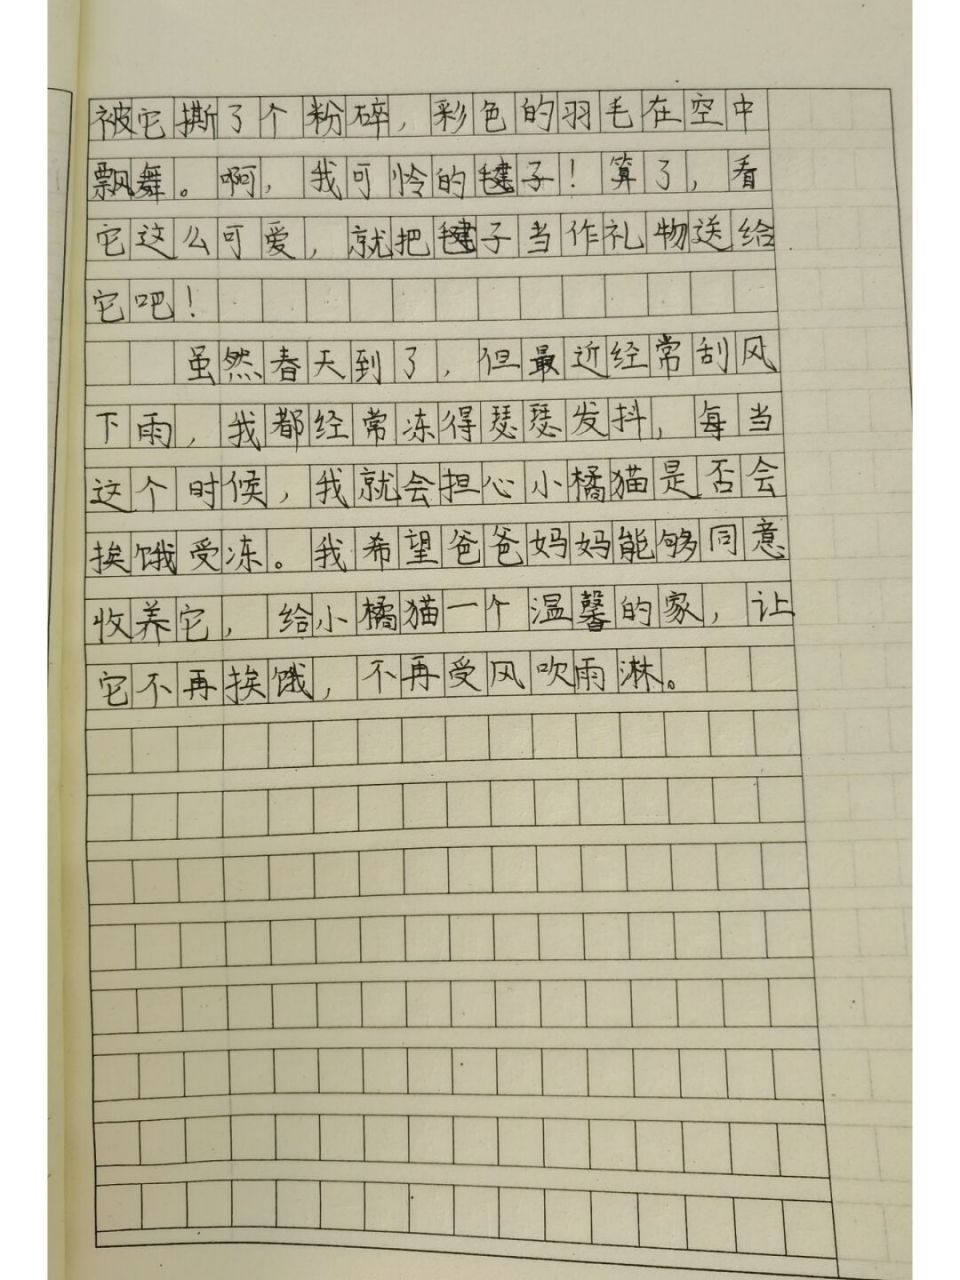 被它撕了个粉碎，彩色的羽毛在空中
飘舞。啊，我可怜的毽子！算了，看
它这么可爱，就把毽子当作礼物送给
它吧！
虽然春天到了，但最近经常刮风
下雨，我都经常冻得瑟瑟发抖，每当
这个时候，我就会担心小橘猫是否会
挨饿受冻。我希望爸爸妈妈能够同意
收养它，给小橘猫一个温馨的家，让
它不再挨饿，不再受风吹雨淋。